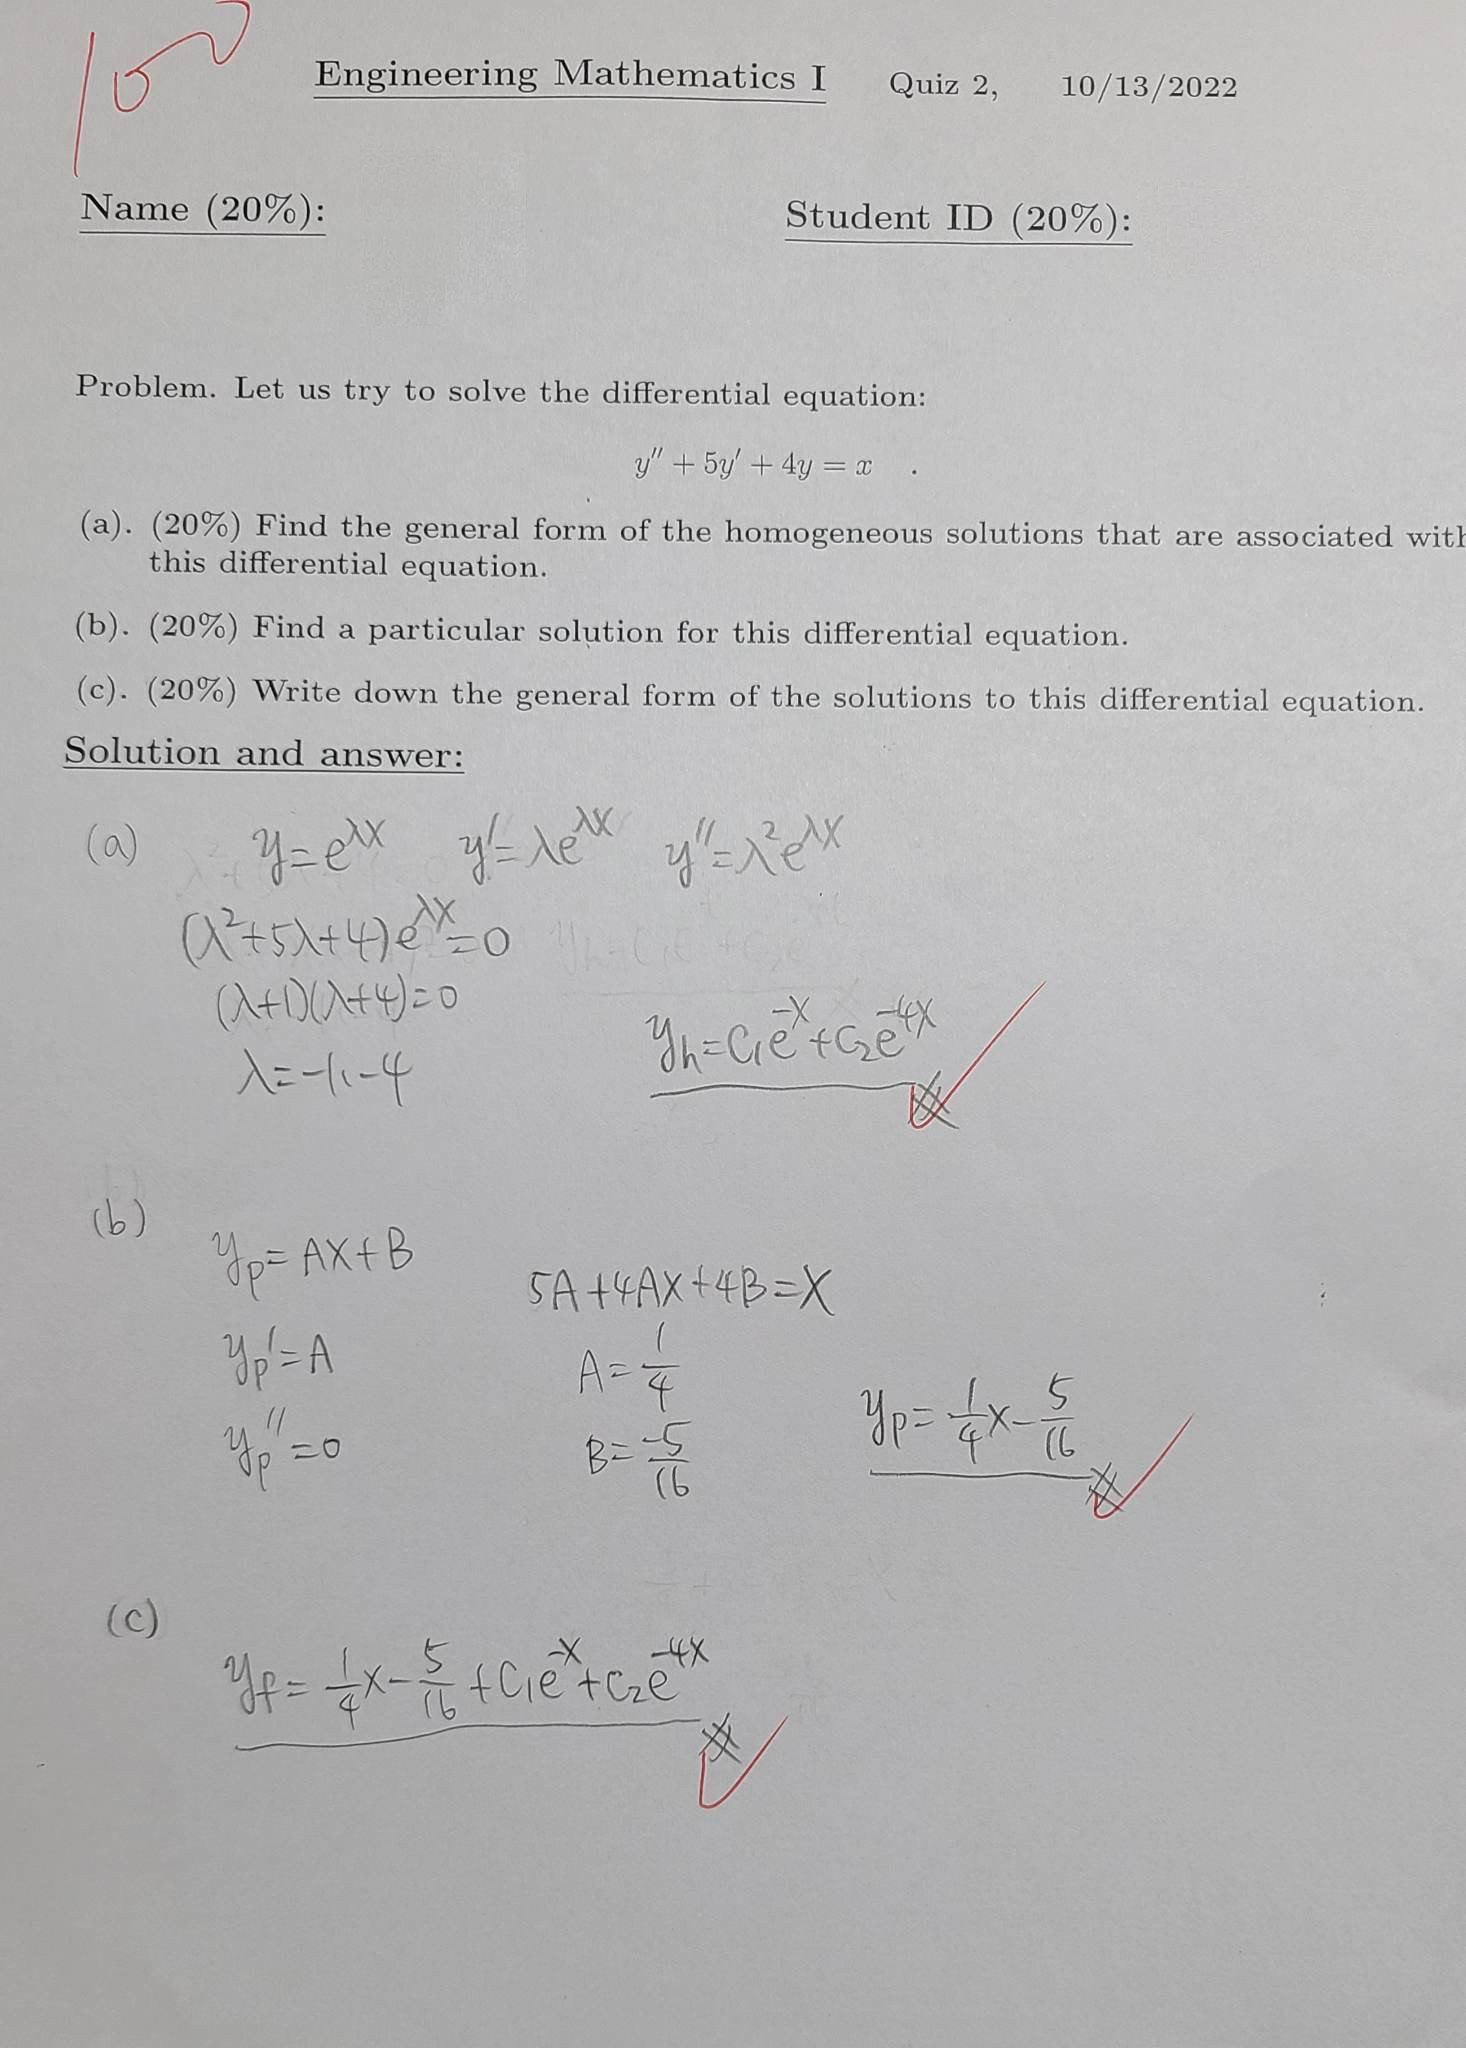 100
Engineering Mathematics I Quiz 2, 10/13/2022
Name (20%): Student ID (20%):
Problem. Let us try to solve the differential equation:
y″ + 5y′ + 4y = x .
(a). (20%) Find the general form of the homogeneous solutions that are associated with
this differential equation.
(b). (20%) Find a particular solution for this differential equation.
(c). (20%) Write down the general form of the solutions to this differential equation.
Solution and answer:
(a) y=e^{λx} y′=λe^{λx} y″=λ²e^{λx}
(λ²+5λ+4)e^{λx}=0
(λ+1)(λ+4)=0
y_h=C₁e^{-x}+C₂e^{-4x}
λ=-1,-4
(b)
y_p=Ax+B
5A+4Ax+4B=x
y_p′=A
A=1/4
y_p=1/4x-5/16
y_p″=0
B=-5/16
(c)
y_f=1/4x-5/16+C₁e^{-x}+C₂e^{-4x}